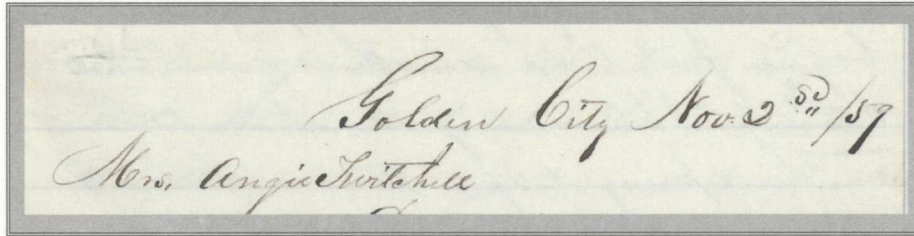 Golden City Nov. 2nd /59
Mrs. Angie Twitchell